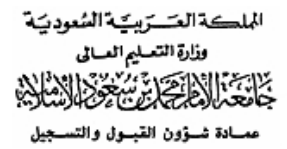 المملكة العـربيـة السعوديـة
وزارة التعليم العالى
جامعة الإمام محمد بن سعود الإسلامية
عمـادة شـؤون القبـول والتسـجيل